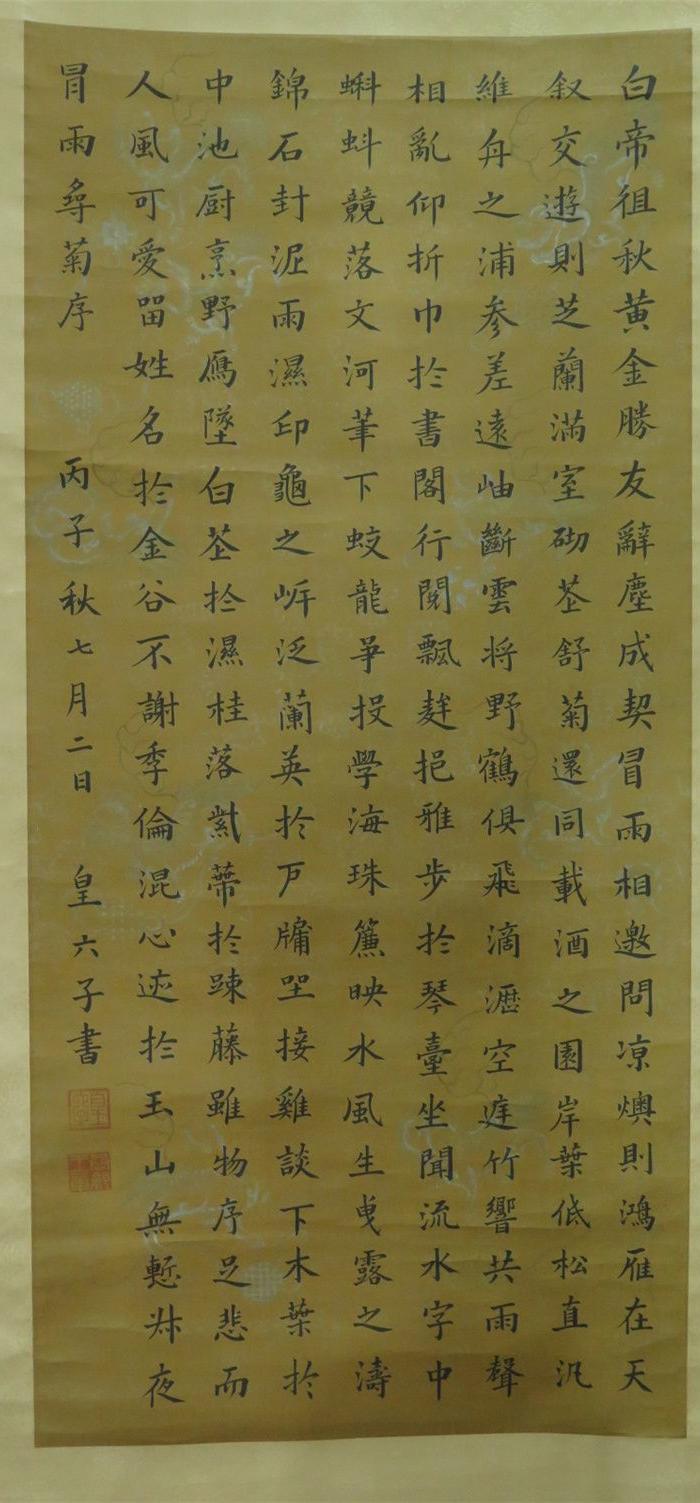 白帝徂秋黄金勝友辭塵成契冒雨相邀問凉燠則鴻雁在天
叙交遊則芝蘭滿室砌苤舒菊還同載酒之園岸葉低松直汎
維舟之浦参差遠岫斷雲将野鶴俱飛滴瀝空庭竹響共雨聲
相亂仰折巾扵書閣行閱飄㲠挹雅步扵琴臺坐聞流水字中
蝌蚪競落文河筆下蛟龍爭投學海珠簾映水風生曵露之濤
錦石封泥雨濕印龜之岸泛蘭英扵戸牖坐接雞談下木葉扵
中池厨烹野鴈墜白苤扵濕桂落紫蔕扵踈藤雖物序足悲而
人風可愛留姓名扵金谷不謝季倫混心迹扵玉山無慙叔夜
冒雨尋菊序 丙子秋七月二日 皇六子書